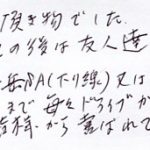 頂き物でした
の後は友人達
毎SA(下り線)又は
まで毎々ドライブが
皆様から喜ばれて